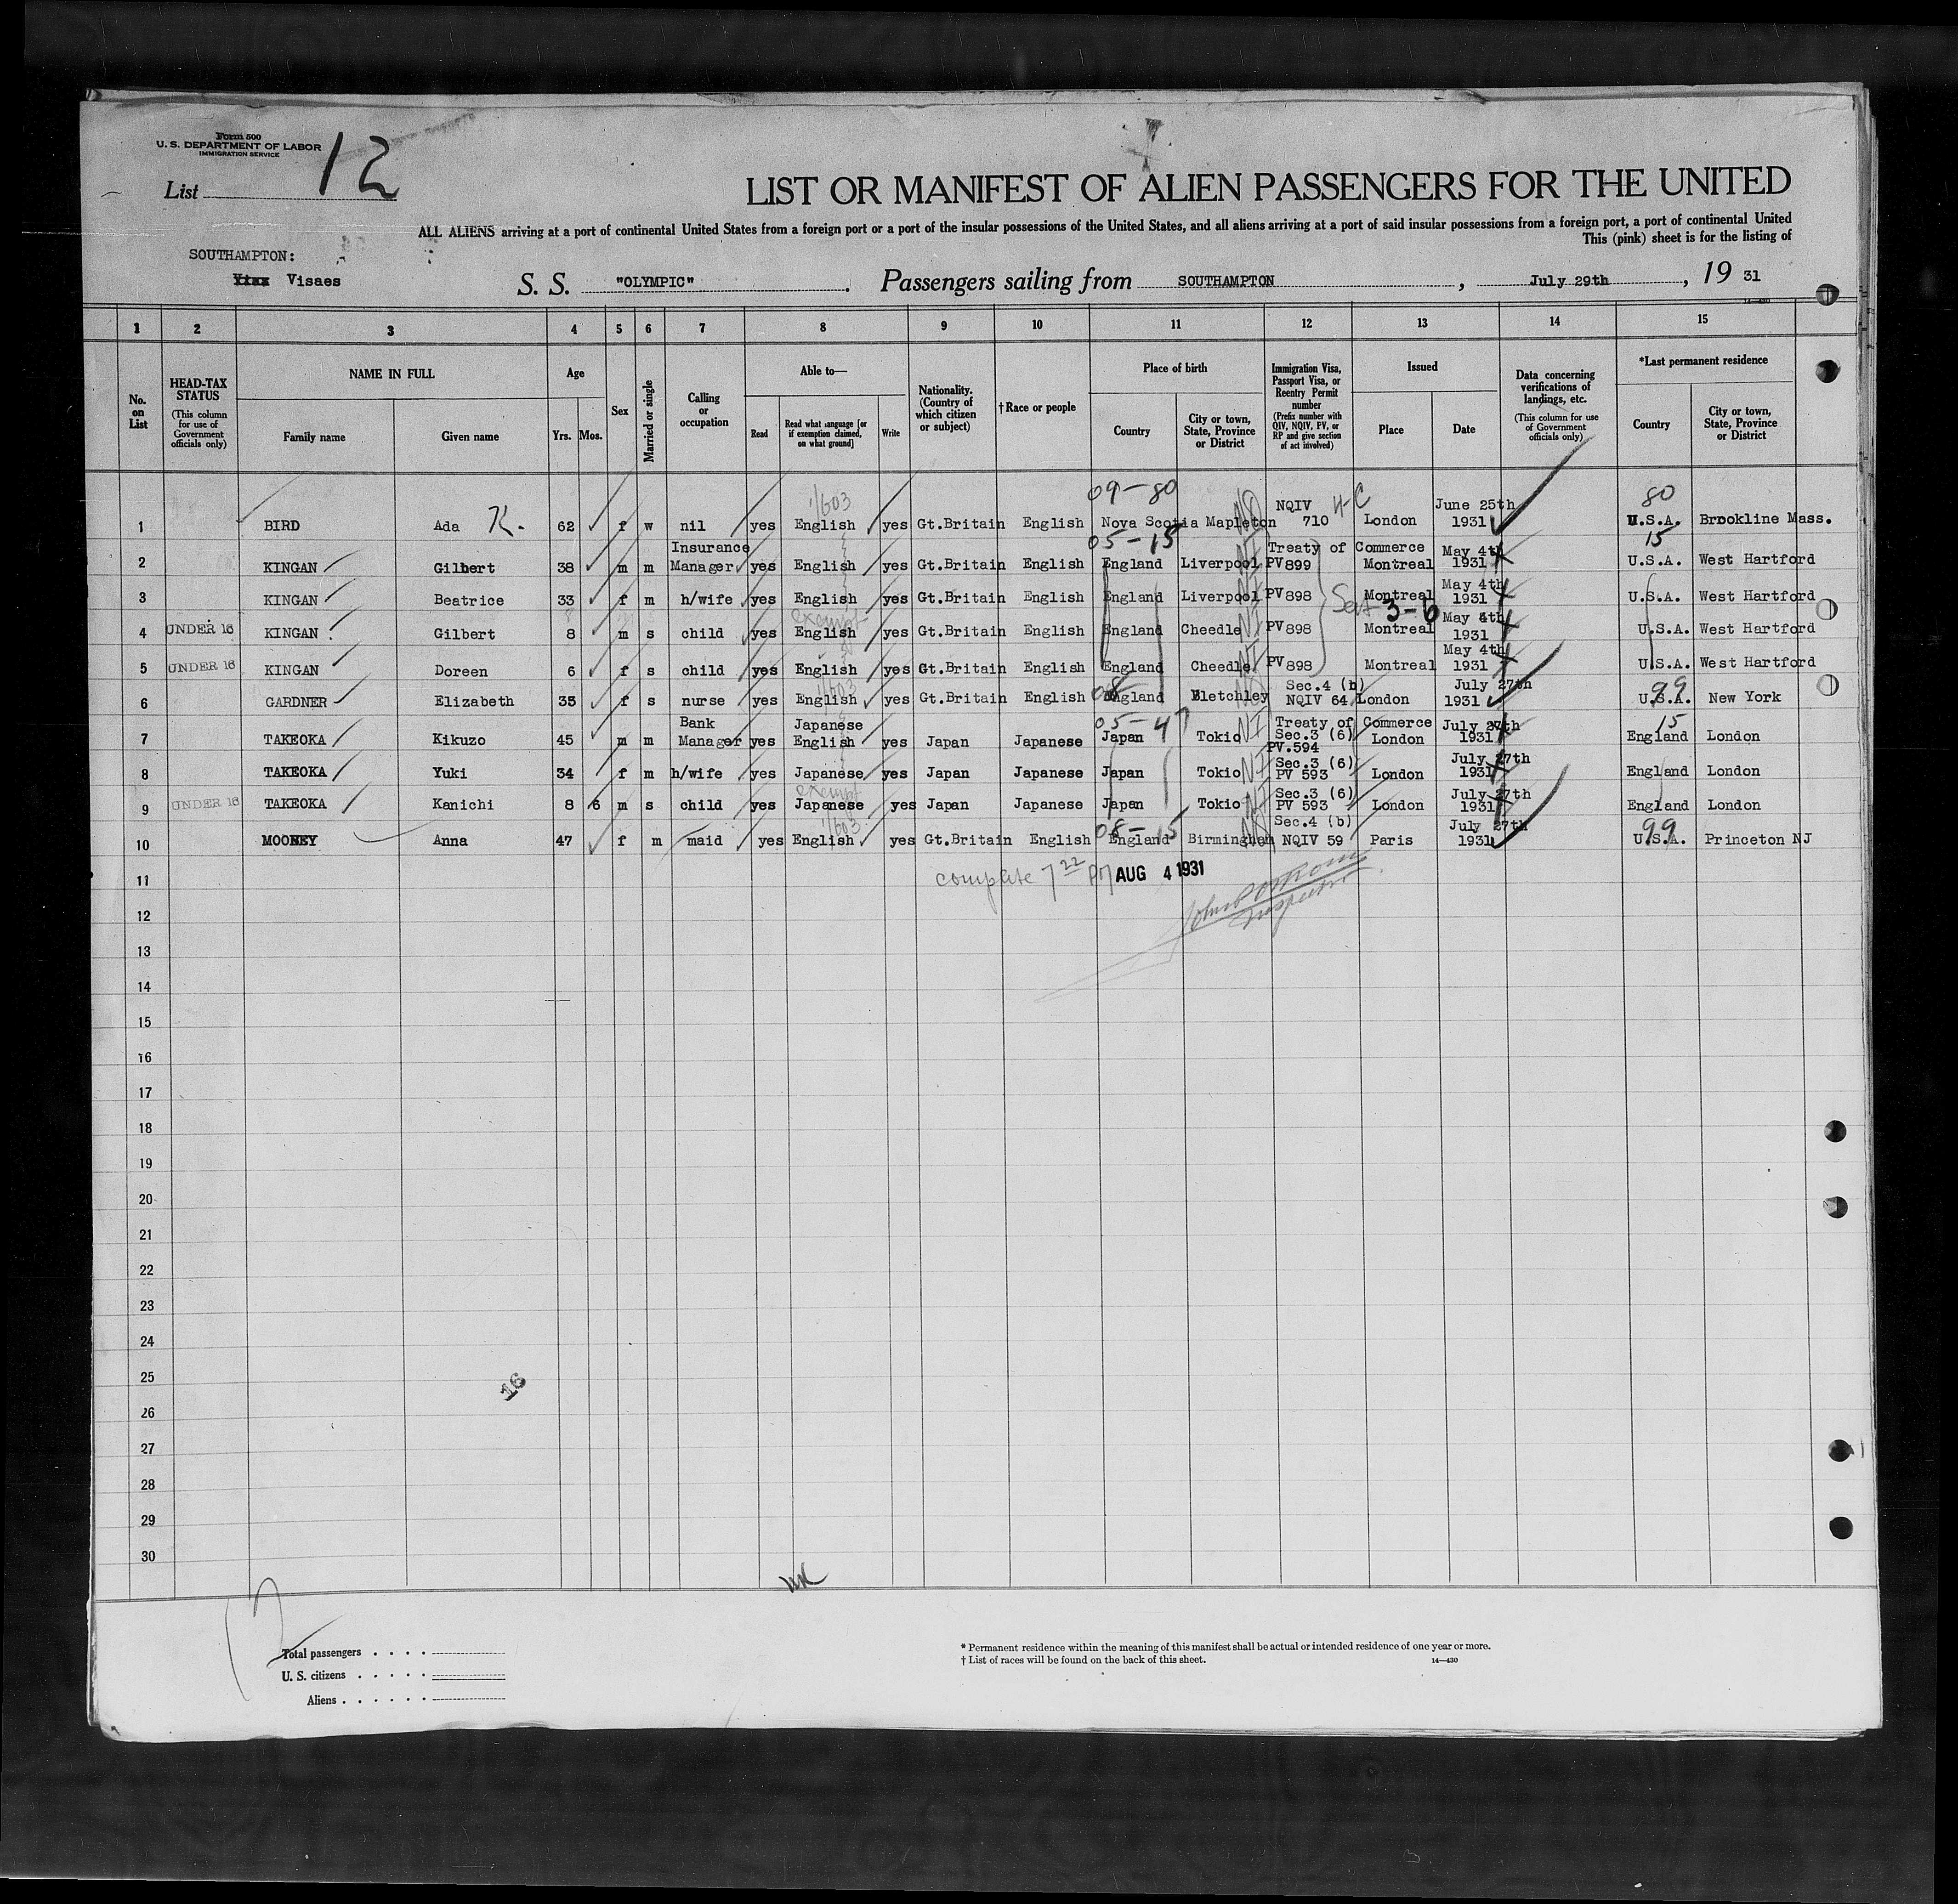 Form 500
U. S. DEPARTMENT OF LABOR
IMMIGRATION SERVICE
List 12
LIST OR MANIFEST OF ALIEN PASSENGERS FOR THE UNITED
ALL ALIENS arriving at a port of continental United States from a foreign port or a port of the insular possessions of the United States, and all aliens arriving at a port of said insular possessions from a foreign port, a port of continental United
This (pink) sheet is for the listing of
SOUTHAMPTON:
Visaes
S. S. "OLYMPIC". Passengers sailing from SOUTHAMPTON, July 29th, 19 31
1 2 3 4 5 6 7 8 9 10 11 12 13 14 15
No. on List
HEAD-TAX STATUS (This column for use of Government officials only)
NAME IN FULL
Family name Given name
Age
Yrs. Mos.
Sex
Married or single
Calling or occupation
Able to—
Read
Read what language [or if exemption claimed, on what ground]
Write
Nationality. (Country of which citizen or subject)
†Race or people
Place of birth
Country
City or town, State, Province or District
Immigration Visa, Passport Visa, or Reentry Permit number (Prefix number with QIV, NQIV, PV, or RP and give section of act involved)
Issued
Place Date
Data concerning verifications of landings, etc. (This column for use of Government officials only)
*Last permanent residence
Country
City or town, State, Province or District
09-80 80
1603 NQIV 4-C June 25th
1 BIRD Ada K. 62 f w nil yes English yes Gt.Britain English Nova Scotia Mapleton 710 London 1931 U.S.A. Brookline Mass.
05-15 15
Insurance Treaty of Commerce May 4th
2 KINGAN Gilbert 38 m m Manager yes English yes Gt.Britain English England Liverpool PV899 Montreal 1931 U.S.A. West Hartford
May 4th
3 KINGAN Beatrice 33 f m h/wife yes English yes Gt.Britain English England Liverpool PV898 Montreal 1931 U.S.A. West Hartford
exempt 3-6 May 4th
4 UNDER 16 KINGAN Gilbert 8 m s child yes English yes Gt.Britain English England Cheedle PV898 Montreal 1931 U.S.A. West Hartford
May 4th
5 UNDER 16 KINGAN Doreen 6 f s child yes English yes Gt.Britain English England Cheedle PV898 Montreal 1931 U.S.A. West Hartford
1603 08 Sec.4 (b) July 27th 99
6 GARDNER Elizabeth 35 f s nurse yes English yes Gt.Britain English England Bletchley NQIV 64 London 1931 U.S.A. New York
Bank Japanese 05-47 Treaty of Commerce July 27th 15
7 TAKEOKA Kikuzo 45 m m Manager yes English yes Japan Japanese Japan Tokio Sec.3 (6) PV.594 London 1931 England London
Sec.3 (6) July 27th
8 TAKEOKA Yuki 34 f m h/wife yes Japanese yes Japan Japanese Japan Tokio PV 593 London 1931 England London
exempt Sec.3 (6) July 27th
9 UNDER 16 TAKEOKA Kanichi 8 6 m s child yes Japanese yes Japan Japanese Japan Tokio PV 593 London 1931 England London
1603 08-15 Sec.4 (b) July 27th 99
10 MOONEY Anna 47 f m maid yes English yes Gt.Britain English England Birmingham NQIV 59 Paris 1931 U.S.A. Princeton NJ
11 complete 7 22 PM AUG 4 1931
12 Inspector
13
14
15
16
17
18
19
20
21
22
23
24
25
16
26
27
28
29
30
Total passengers . . . .
U. S. citizens . . . . .
Aliens . . . . . .
* Permanent residence within the meaning of this manifest shall be actual or intended residence of one year or more.
† List of races will be found on the back of this sheet.
14—430